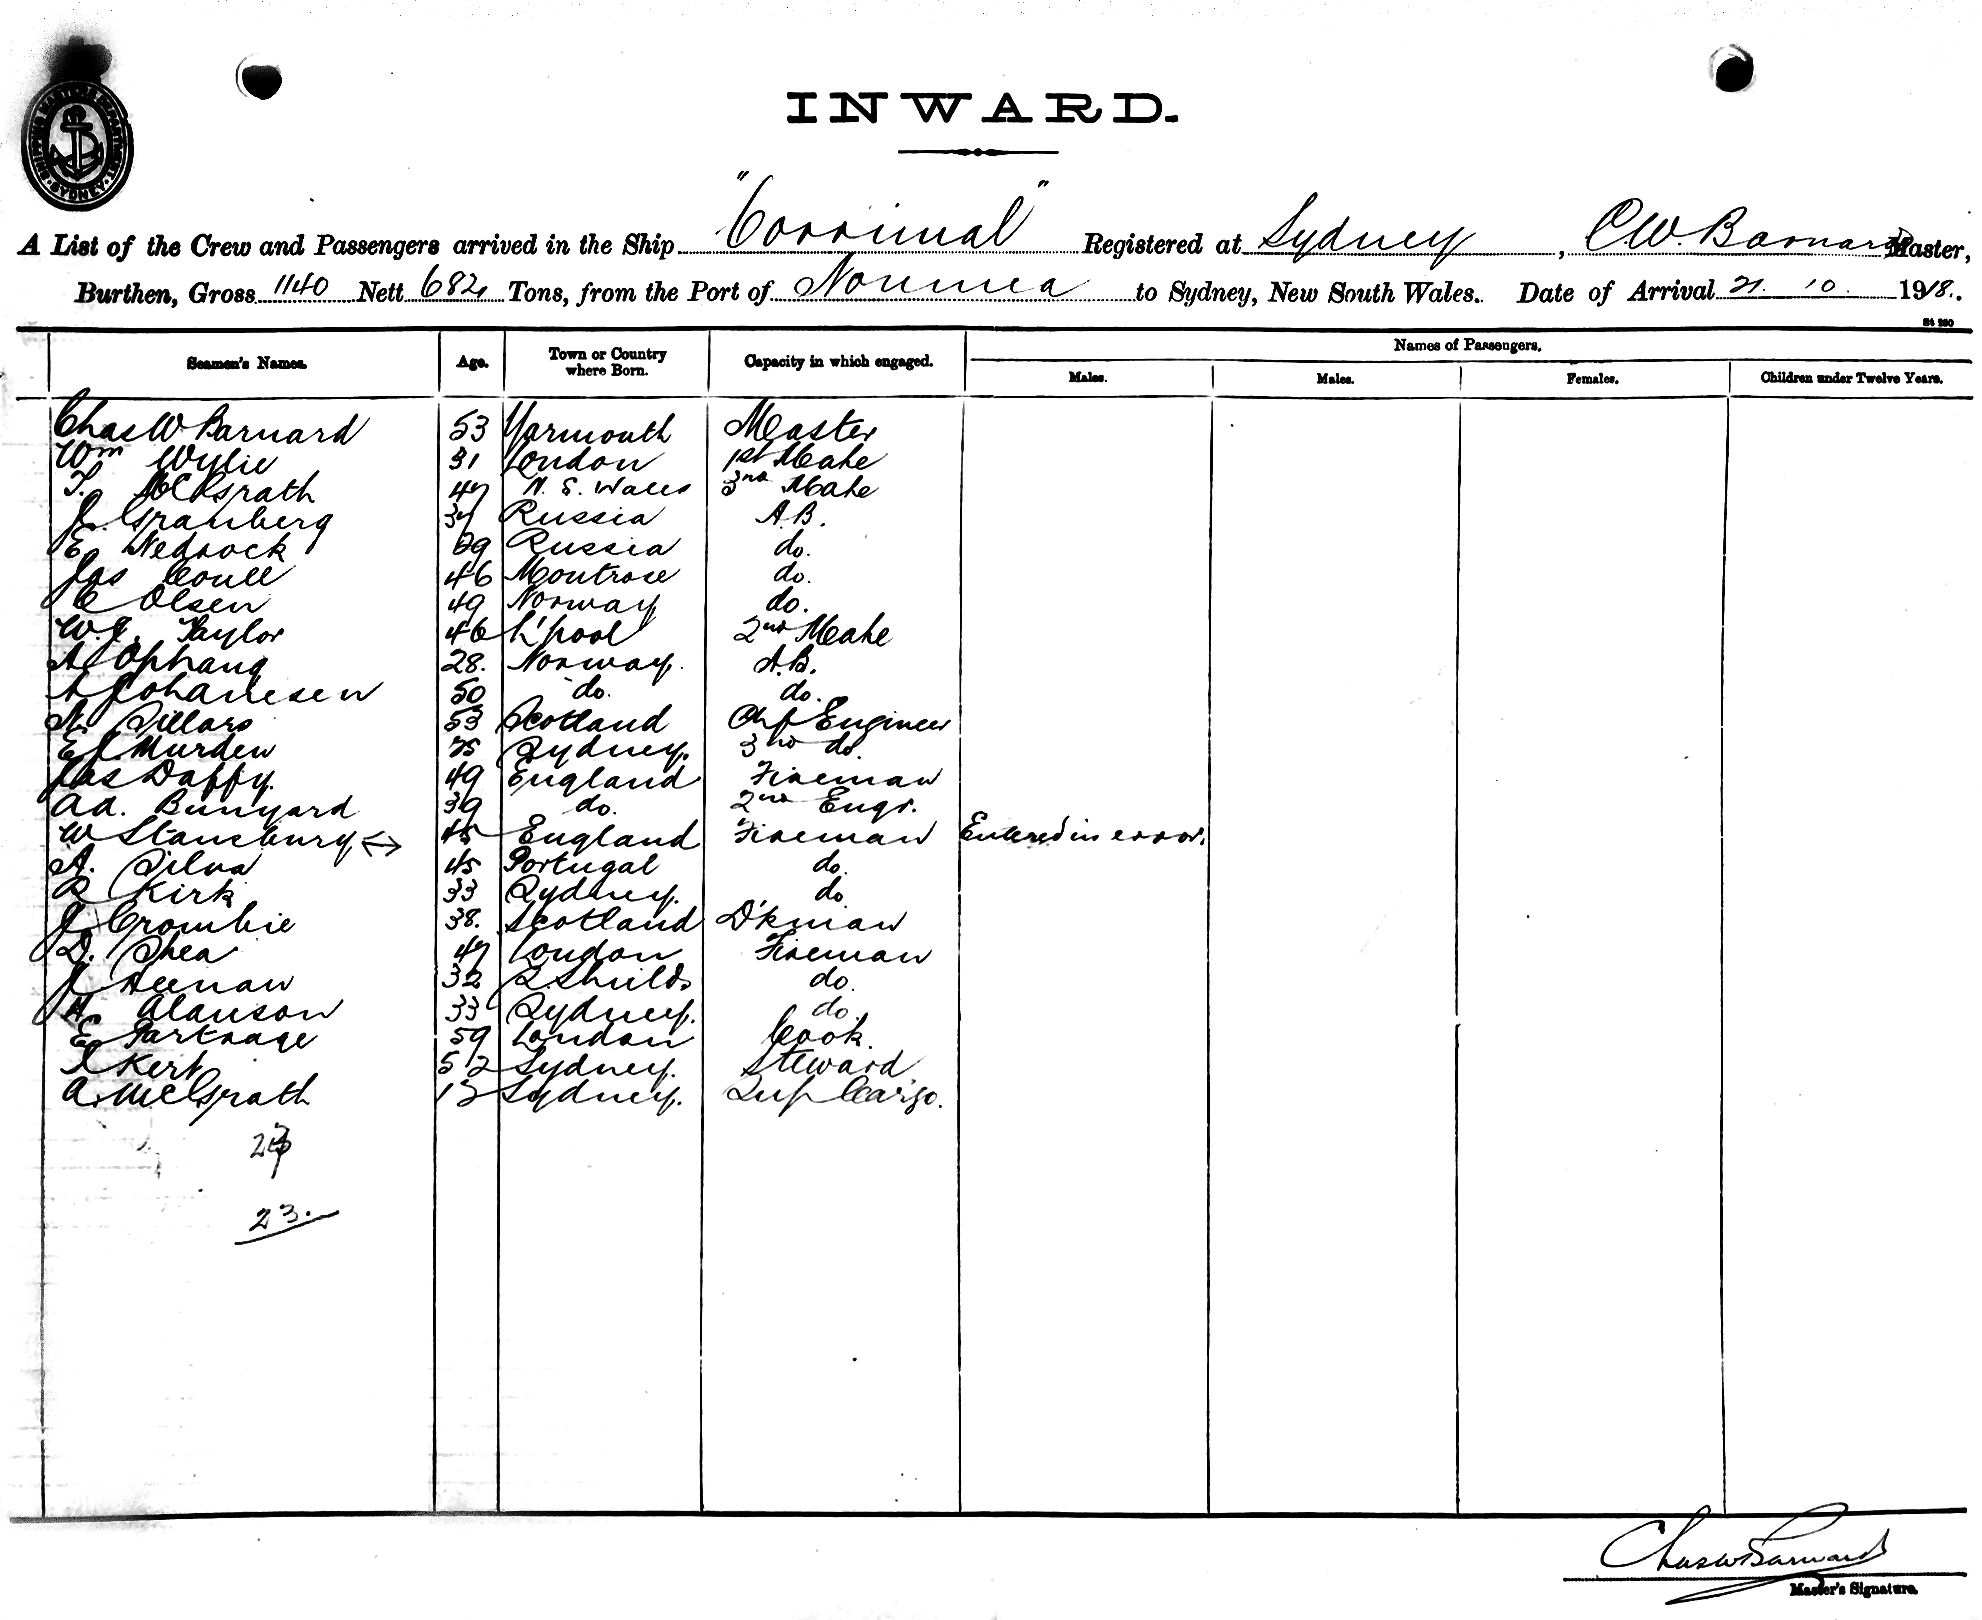 SHIPPING MASTERS DEPARTMENT
SYDNEY
INWARD.
A List of the Crew and Passengers arrived in the Ship "Corrimal" Registered at Sydney, C W. Barnard Master,
Burthen, Gross 1140 Nett 682 Tons, from the Port of Noumea to Sydney, New South Wales. Date of Arrival 21. 10. 1918.
Seamen's Names. Age. Town or Country where Born. Capacity in which engaged. Names of Passengers.
Males. Males. Females. Children under Twelve Years.
Chas W Barnard 53 Yarmouth Master
Wm Wylie 31 London 1st Mate
T. McGrath 47 N. S. Wales 3rd Mate
J. Granberg 37 Russia A.B.
E Nedrock 29 Russia do.
Jas Coull 46 Montrose do.
C Olsen 49 Norway do.
W. J. Taylor 46 L'pool 2nd Mate
A Ophaug 28. Norway. A.B.
A Johanesen 50 do. do.
A. Sillars 53 Scotland Chf Engineer
E J Murden 25 Sydney. 3rd do.
Jas Daffy. 49 England Fireman
Ad. Bunyard 39 do. 2nd Engr.
W Stansbury 45 England Fireman Entered in error.
A. Silva 45 Portugal do.
R Kirk 33 Sydney. do
J Crombie 38. Scotland D'kman
D. Shea 47 London Fireman
J Heenan 32 S. Shields do.
H Alanson 33 Sydney. do.
E Partrage 59 London Cook.
Kert 52 Sydney. Steward
A. McGrath 13 Sydney. Sup Cargo.
23.
Chas W Barnard
Master's Signature.